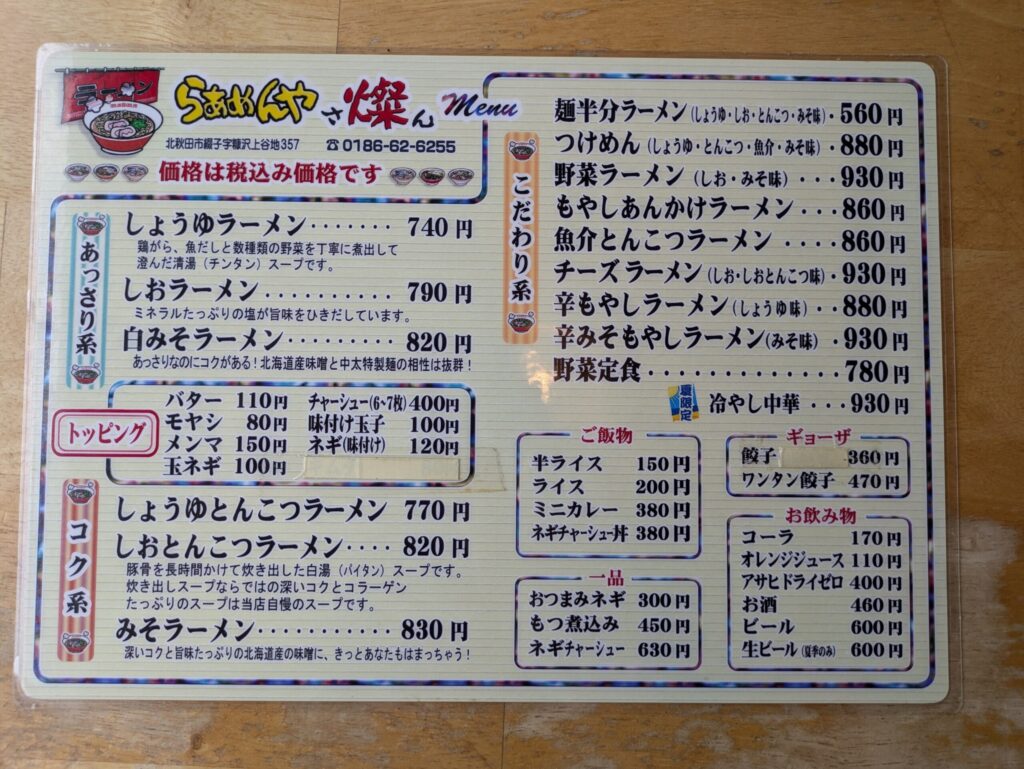 ラーメン
らぁめんや
さ燦ん
Menu
北秋田市綴子字糠沢上谷地357 ☎0186-62-6255
価格は税込み価格です
あっさり系
しょうゆラーメン・・・・・・・ 740円
鶏がら、魚だしと数種類の野菜を丁寧に煮出して
澄んだ清湯（チンタン）スープです。
しおラーメン・・・・・・・・・・ 790円
ミネラルたっぷりの塩が旨味をひきだしています。
白みそラーメン・・・・・・・・ 820円
あっさりなのにコクがある！北海道産味噌と中太特製麺の相性は抜群！
トッピング
バター 110円
モヤシ 80円
メンマ 150円
玉ネギ 100円
チャーシュー(6~7枚)400円
味付け玉子 100円
ネギ(味付け) 120円
コク系
しょうゆとんこつラーメン 770円
しおとんこつラーメン・・・・ 820円
豚骨を長時間かけて炊き出した白湯（パイタン）スープです。
炊き出しスープならではの深いコクとコラーゲン
たっぷりのスープは当店自慢のスープです。
みそラーメン・・・・・・・・・・ 830円
深いコクと旨味たっぷりの北海道産の味噌に、きっとあなたもはまっちゃう！
こだわり系
麺半分ラーメン(しょうゆ・しお・とんこつ・みそ味)・560円
つけめん(しょうゆ・とんこつ・魚介・みそ味)・880円
野菜ラーメン(しお・みそ味)・・・930円
もやしあんかけラーメン・・・860円
魚介とんこつラーメン・・・・860円
チーズラーメン(しお・しおとんこつ味)・930円
辛もやしラーメン(しょうゆ味)・・880円
辛みそもやしラーメン(みそ味)・930円
野菜定食・・・・・・・・・・・・・780円
夏限定
冷やし中華・・・930円
ご飯物
半ライス 150円
ライス 200円
ミニカレー 380円
ネギチャーシュー丼 380円
一品
おつまみネギ 300円
もつ煮込み 450円
ネギチャーシュー 630円
ギョーザ
餃子 360円
ワンタン餃子 470円
お飲み物
コーラ 170円
オレンジジュース 110円
アサヒドライゼロ 400円
お酒 460円
ビール 600円
生ビール(夏季のみ) 600円